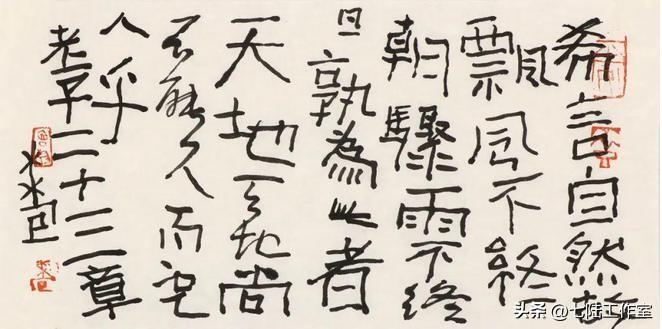 希言自然故
飄風不終
朝驟雨不終
日孰為此者
天地天地尚
不能久而况
人乎
老子二十三章
头条 @七陆工作室